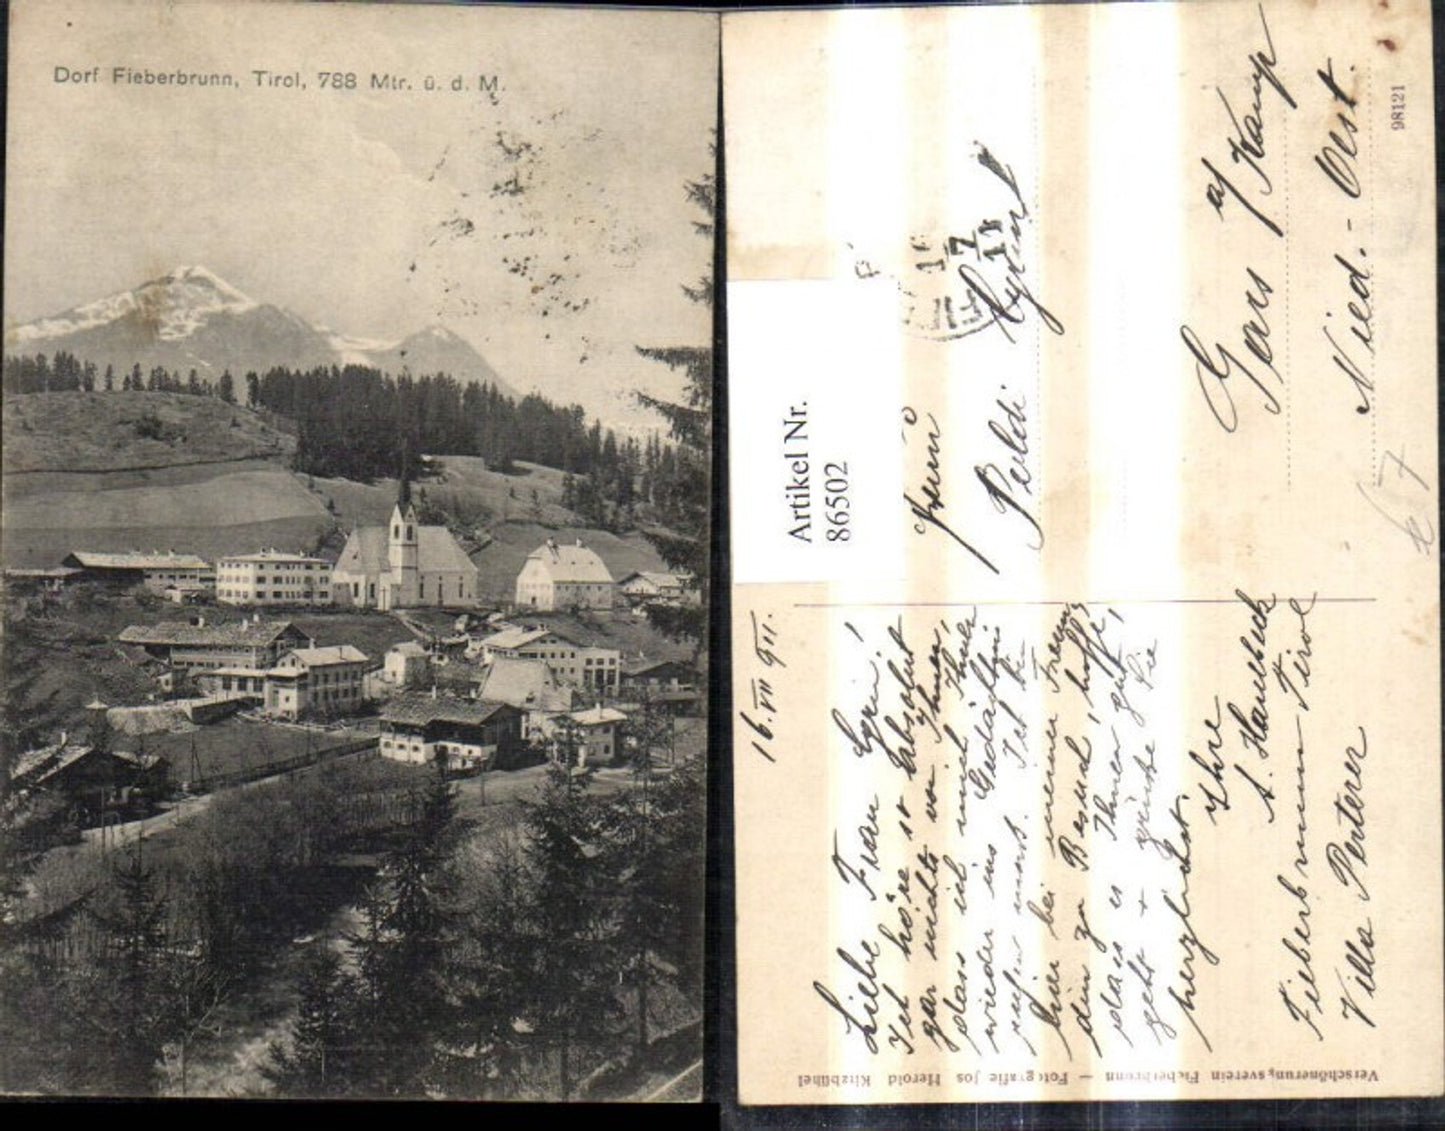 Dorf Fieberbrunn, Tirol, 788 Mtr. ü. d. M.
Artikel Nr.
86502
16. VII 911.
Liebe Frau Gyri!
Ich höre so absolut
gar nichts von Ihnen,
dass ich mich Ihnen
wieder ins Gedächtnis
rufen muss. Ich bin
hier bei meinen Freun-
den zu Besuch, hoffe,
dass es Ihnen gut
geht + grüsse Sie
herzlichst.
Ihre
Fieberbrunn Tirol
Villa Perterer
Frau
Poldi
Gars a/Kamp
Nied.-Oest.
98121
Verschönerungsverein Fieberbrunn — Fotografie Jos Herold Kitzbühel